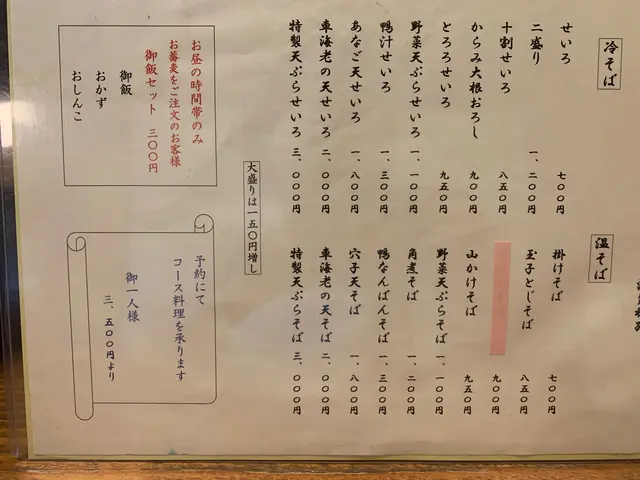 冷そば
せいろ 七〇〇円
二盛り 一、二〇〇円
十割せいろ 八五〇円
からみ大根おろし 九〇〇円
とろろせいろ 九五〇円
野菜天ぷらせいろ 一、一〇〇円
鴨汁せいろ 一、三〇〇円
あなご天せいろ 一、八〇〇円
車海老の天せいろ 二、〇〇〇円
特製天ぷらせいろ 三、〇〇〇円
温そば
掛けそば 七〇〇円
玉子とじそば 八五〇円
九〇〇円
山かけそば 九五〇円
野菜天ぷらそば 一、一〇〇円
角煮そば 一、二〇〇円
鴨なんばんそば 一、三〇〇円
穴子天そば 一、八〇〇円
車海老の天そば 二、〇〇〇円
特製天ぷらそば 三、〇〇〇円
大盛りは一五〇円増し
お昼の時間帯のみ
お蕎麦をご注文のお客様
御飯セット 三〇〇円
御飯
おかず
おしんこ
予約にて
コース料理を承ります
御一人様
三、五〇〇円より